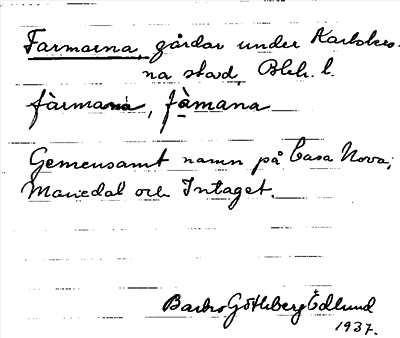 Farmarna, gårdar under Karlskro-
na stad, Blek. l.
fàrmana, fàmana
Gemensamt namn på Casa Nova,
Mariedal och Intaget.
Barbro Götheberg Edlund
1937.